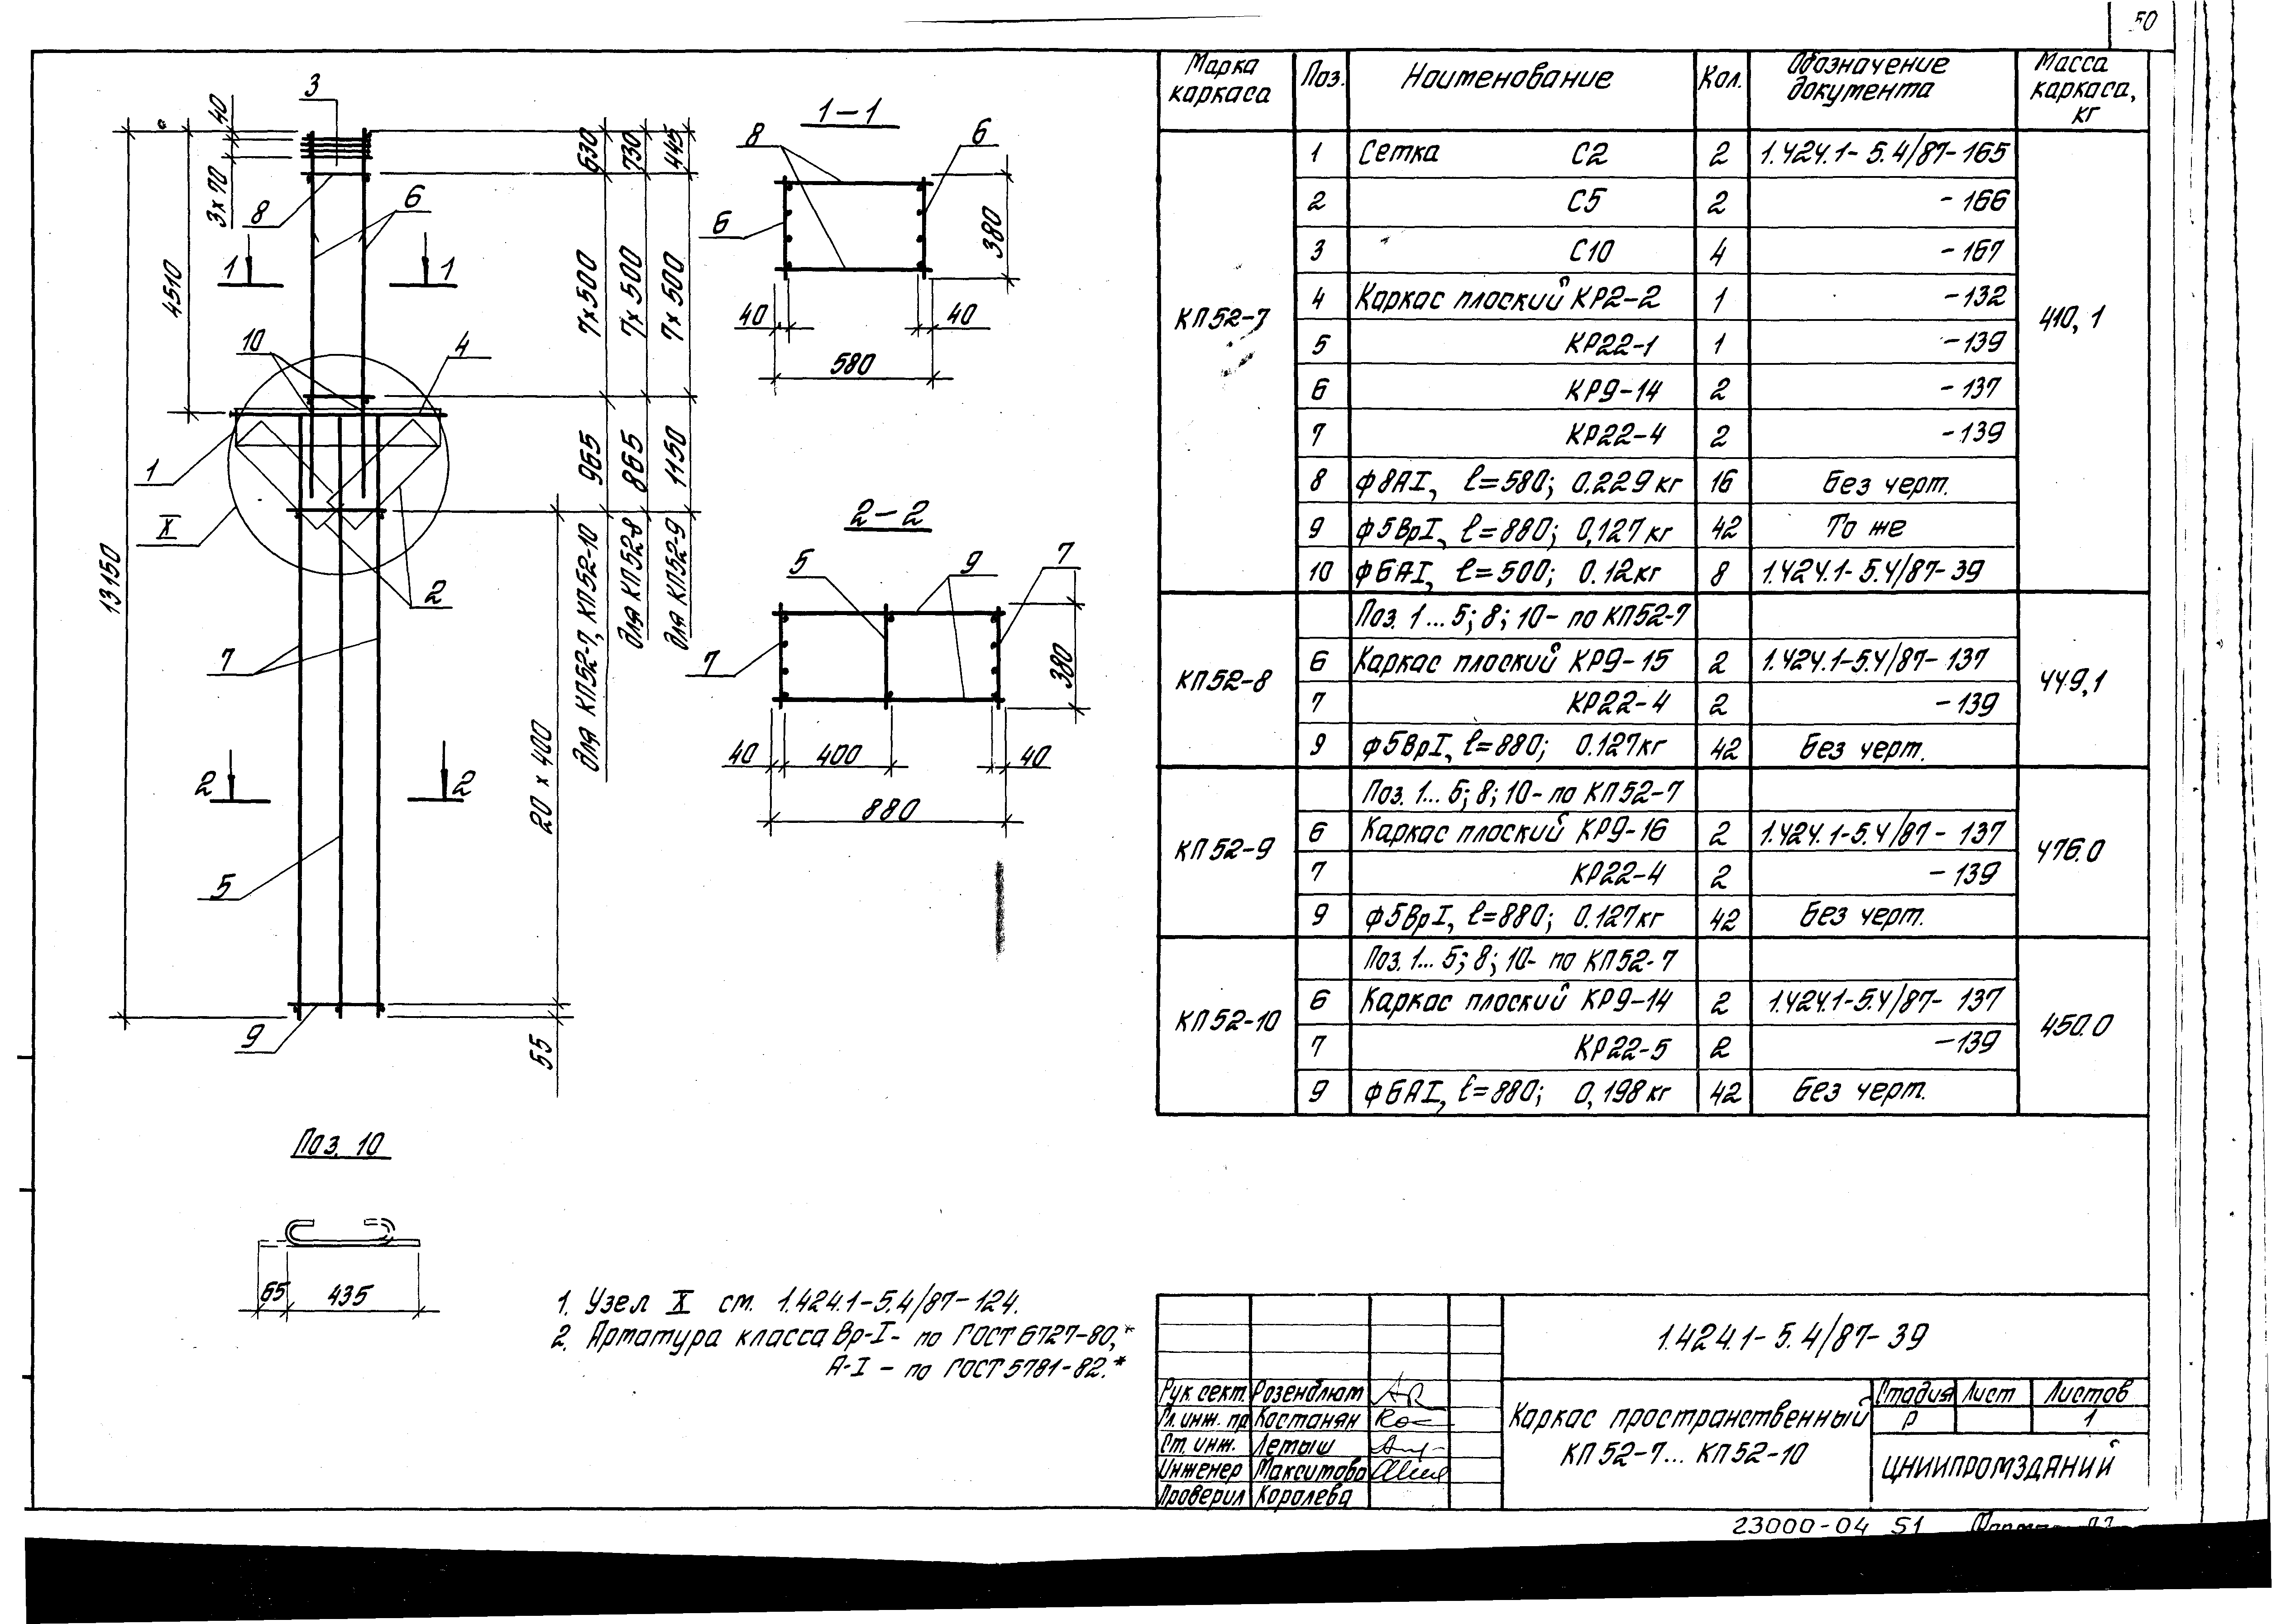 50
3
40
3×70
8
6
4510
1 1
10
4
1
X
2
13150
7
2 2
5
9
630 730 445
7×500 7×500 7×500
965 865 1150
для КП52-7, КП52-10
для КП52-8
для КП52-9
20×400
55
1-1
8 6
6
380
40 40
580
2-2
5 9 7
7
380
40 400 40
880
Поз. 10
65 435
1. Узел X см. 1.424.1-5.4/87-124.
2. Арматура класса Вр-I- по ГОСТ 6727-80,*
А-I - по ГОСТ 5781-82.*
Марка каркаса Поз. Наименование Кол. Обозначение документа Масса каркаса, кг
КП52-7 410,1
1 Сетка С2 2 1.424.1-5.4/87-165
2 С5 2 -166
3 С10 4 -167
4 Каркас плоский КР2-2 1 -132
5 КР22-1 1 -139
6 КР9-14 2 -137
7 КР22-4 2 -139
8 ф8АI, ℓ=580; 0.229кг 16 Без черт.
9 ф5ВрI, ℓ=880; 0,127кг 42 То же
10 ф6АI, ℓ=500; 0.12кг 8 1.424.1-5.4/87-39
КП52-8 449,1
Поз. 1...5; 8; 10- по КП52-7
6 Каркас плоский КР9-15 2 1.424.1-5.4/87-137
7 КР22-4 2 -139
9 ф5ВрI, ℓ=880; 0.127кг 42 Без черт.
КП52-9 476.0
Поз. 1...5; 8; 10- по КП52-7
6 Каркас плоский КР9-16 2 1.424.1-5.4/87-137
7 КР22-4 2 -139
9 ф5ВрI, ℓ=880; 0.127кг 42 Без черт.
КП52-10 450.0
Поз. 1...5; 8; 10- по КП52-7
6 Каркас плоский КР9-14 2 1.424.1-5.4/87-137
7 КР22-5 2 -139
9 ф6АI, ℓ=880; 0,198кг 42 Без черт.
1.424.1-5.4/87-39
Рук сект. Розенблюм
Гл. инж. пр Костанян
Ст. инж. Летыш
Инженер Максимова
Проверил Королева
Каркас пространственный
КП52-7... КП52-10
Стадия Лист Листов
Р 1
ЦНИИПРОМЗДАНИЙ
23000-04 51